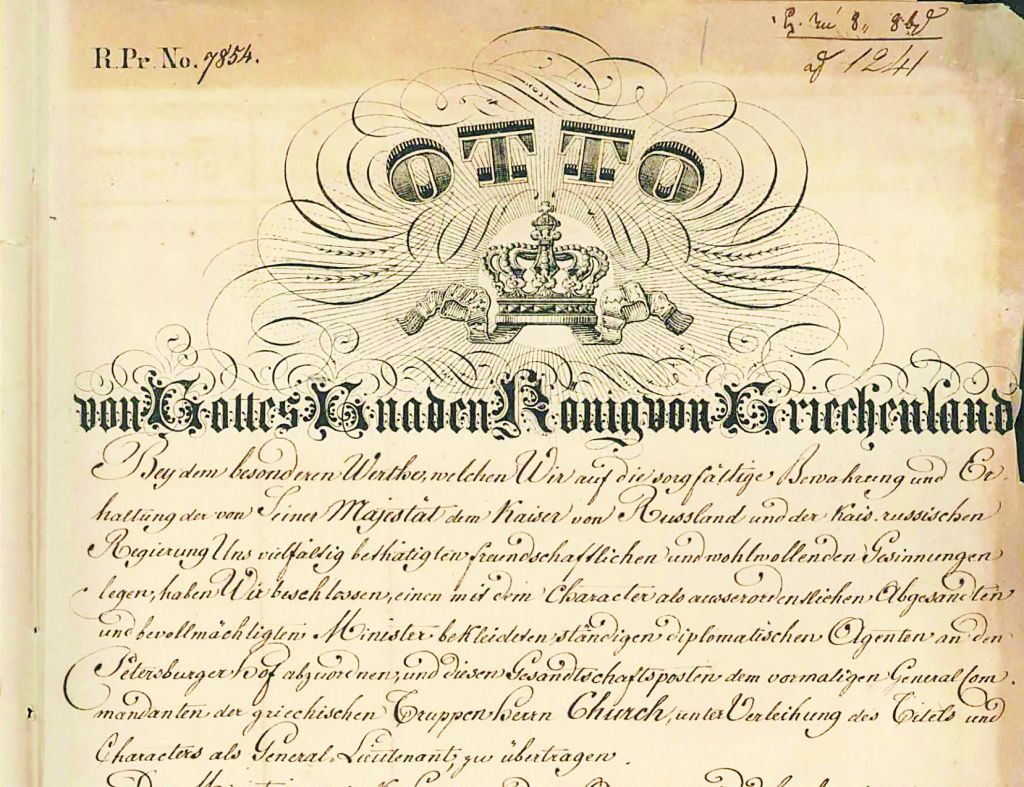 R.Pr. No. 7854.
ad 1241
OTTO
von Gottes Gnaden König von Griechenland
Bey dem besonderen Werthe, welchen Wir auf die sorgfältige Bewahrung und Er-
haltung der von Seiner Majestät dem Kaiser von Russland und der kais. russischen
Regierung Uns vielfältig bethätigten freundschaftlichen und wohlwollenden Gesinnungen
legen, haben Wir beschlossen, einen mit dem Character als ausserordentlichen Abgesandten
und bevollmächtigten Minister bekleideten ständigen diplomatischen Agenten an den
Petersburger Hof abzuordnen, und diesen Gesandtschaftsposten dem vormaligen General Com-
mandanten der griechischen Truppen Herrn Church, unter Verleihung des Titels und
Characters als General-Lieutenant, zu übertragen.